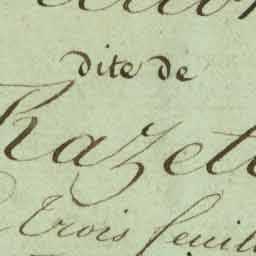 dite de
Kazet
Trois feuill